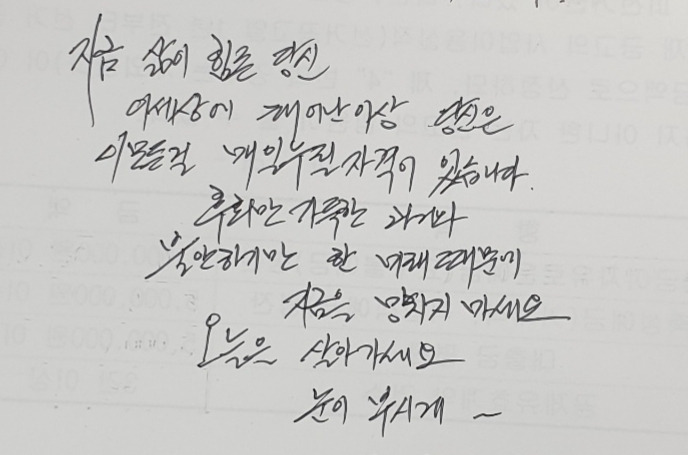 지금 삶이 힘든 당신
이세상에 태어난이상 당신은
이모든걸 매일누릴자격이 있습니다.
후회만가득한 과거와
불안하기만 한 미래때문에
지금을 망치지 마세요
오늘은 살아가세요
눈이 부시게 ~